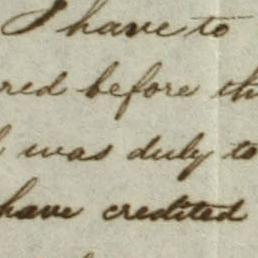 I have to
red before th
was duly to
have credited